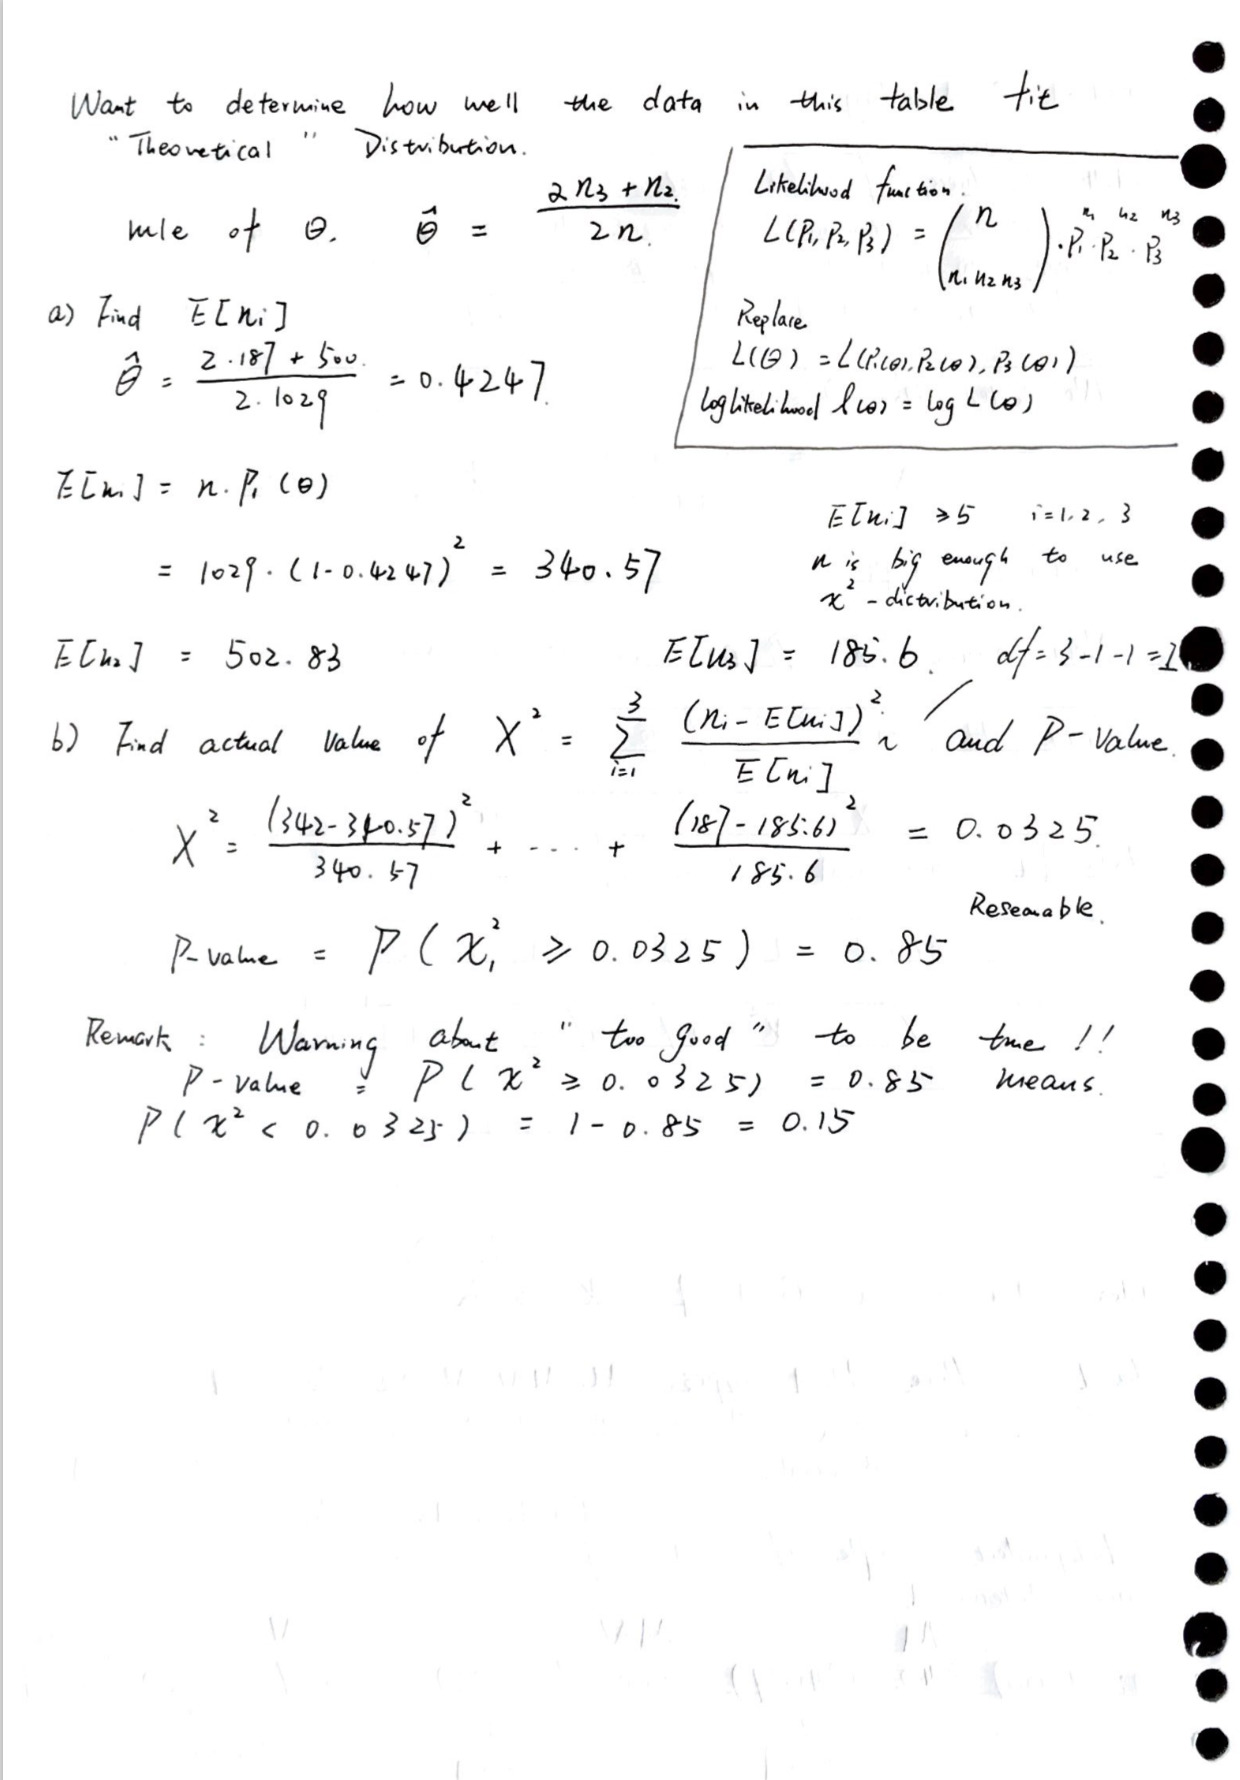 Want to determine how well the data in this table fit
"Theoretical" Distribution.
mle of θ. θ̂ = (2n₃ + n₂) / 2n.
Likelihood function.
L(P₁, P₂, P₃) = (n / n₁ n₂ n₃) · P₁^n₁ · P₂^n₂ · P₃^n₃
Replace
L(θ) = L(P₁(θ), P₂(θ), P₃(θ))
log likelihood l(θ) = log L(θ)
a) Find E[nᵢ]
θ̂ = (2·187 + 500) / (2·1029) = 0.4247.
E[n₁] = n · P₁ (θ)
= 1029 · (1-0.4247)² = 340.57
E[nᵢ] ≥ 5 i = 1, 2, 3
n is big enough to use
x² - dictribution.
E[n₂] = 502.83 E[n₃] = 185.6. df = 3-1-1 = 1
b) Find actual Value of X² = Σᵢ₌₁³ (nᵢ - E[nᵢ])² / E[nᵢ] ~ and P-Value.
X² = (342-340.57)² / 340.57 + .... + (187-185.6)² / 185.6 = 0.0325.
Reseanable.
P-value = P(x₁² ≥ 0.0325) = 0.85
Remark : Warning about "too good" to be true !!
P-value = P(x² ≥ 0.0325) = 0.85 means.
P(x² < 0.0325) = 1 - 0.85 = 0.15